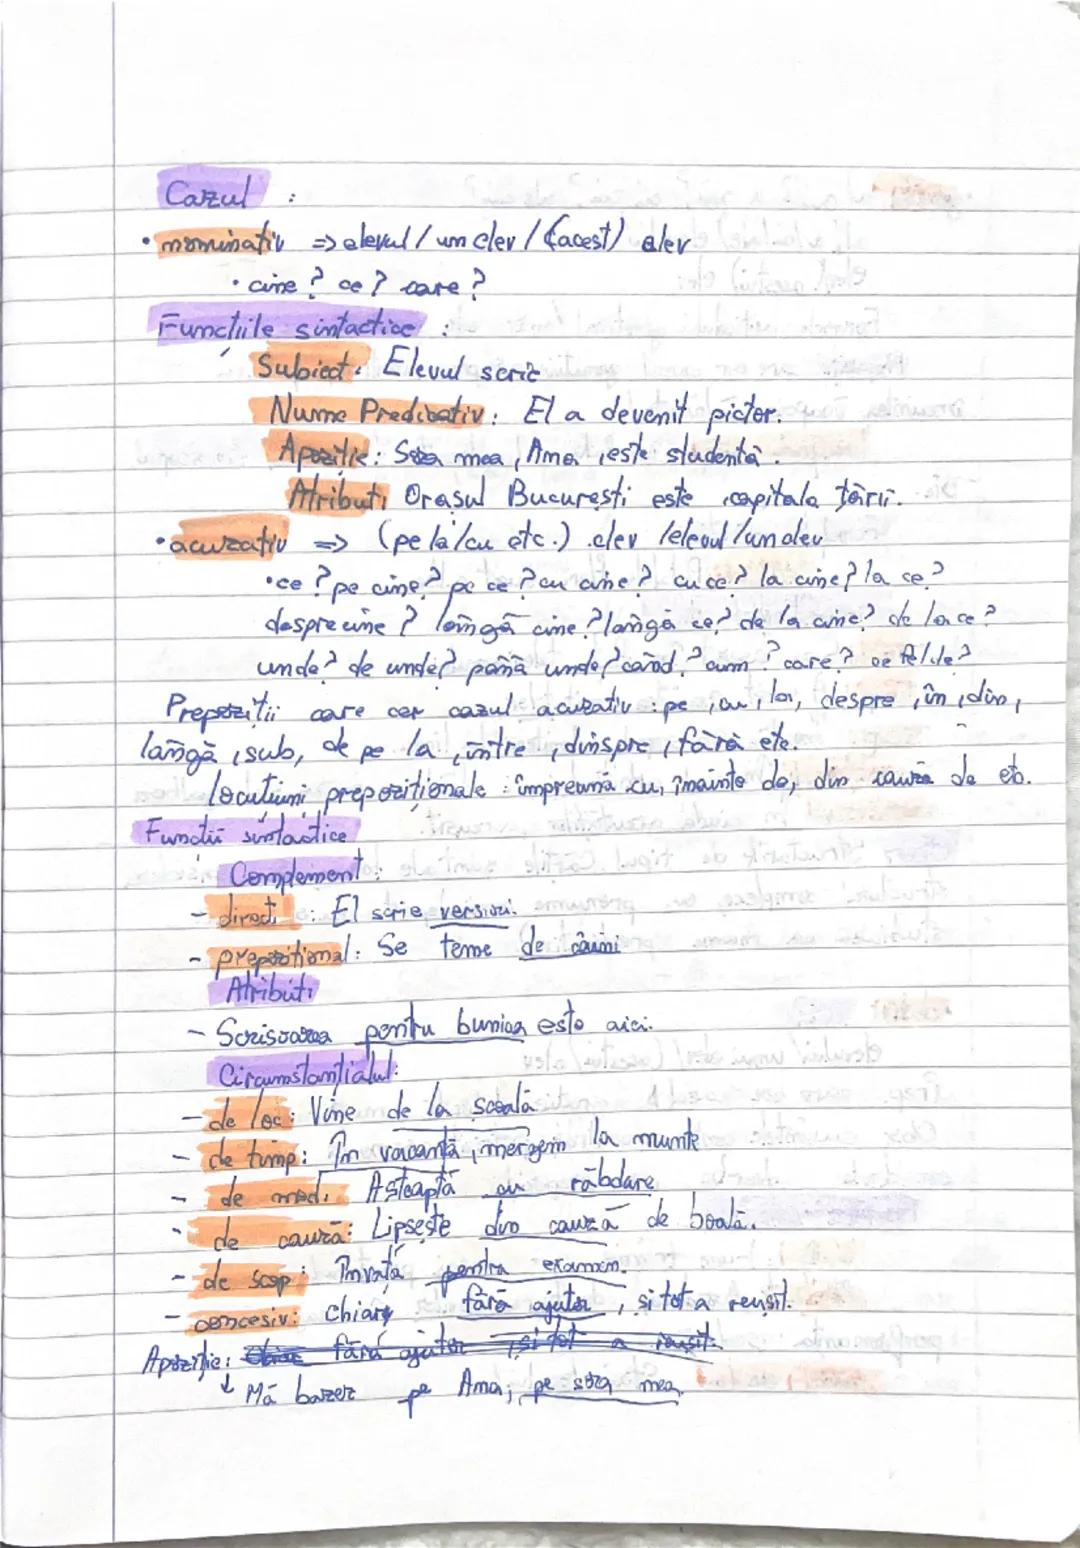 Cazul :
• nominativ => elevul / un elev / (acest) elev
• cine ? ce ? care ?
Funcțiile sintactice :
Subiect: Elevul scrie
Nume Predicativ: El a devenit pictor.
Apoziție: Sora mea, Ana, este studentă.
Atribut: Orașul București este capitala țării.
• acuzativ => (pe la/cu etc.) elev /elevul /un elev
• ce ? pe cine? pe ce ? cu cine ? cu ce ? la cine ? la ce ?
despre cine ? lângă cine ? lângă ce ? de la cine ? de la ce ?
unde ? de unde ? până unde ? când ? cum ? care ? ce fel de ?
Prepoziții care cer cazul acuzativ : pe, cu, la, despre, în, din,
lângă, sub, de pe la, între, dinspre, fără etc.
locuțiuni prepoziționale : împreună cu, înainte de, din cauza de etc.
Funcții sintactice
Complement:
- direct : El scrie versuri.
- prepozițional: Se teme de câini
Atribut:
- Scrisoarea pentru bunica este aici.
Circumstanțialul:
- de loc : Vine de la școală
- de timp: În vacanță, mergem la munte
- de mod: Așteaptă cu răbdare
- de cauză: Lipsește din cauză de boală.
- de scop : Învață pentru examen.
- concesiv: Chiar fără ajutor, și tot a reușit.
Apoziție: fără ajutor, și tot a reușit.
↓ Mă bazez pe Ana, pe sora mea.